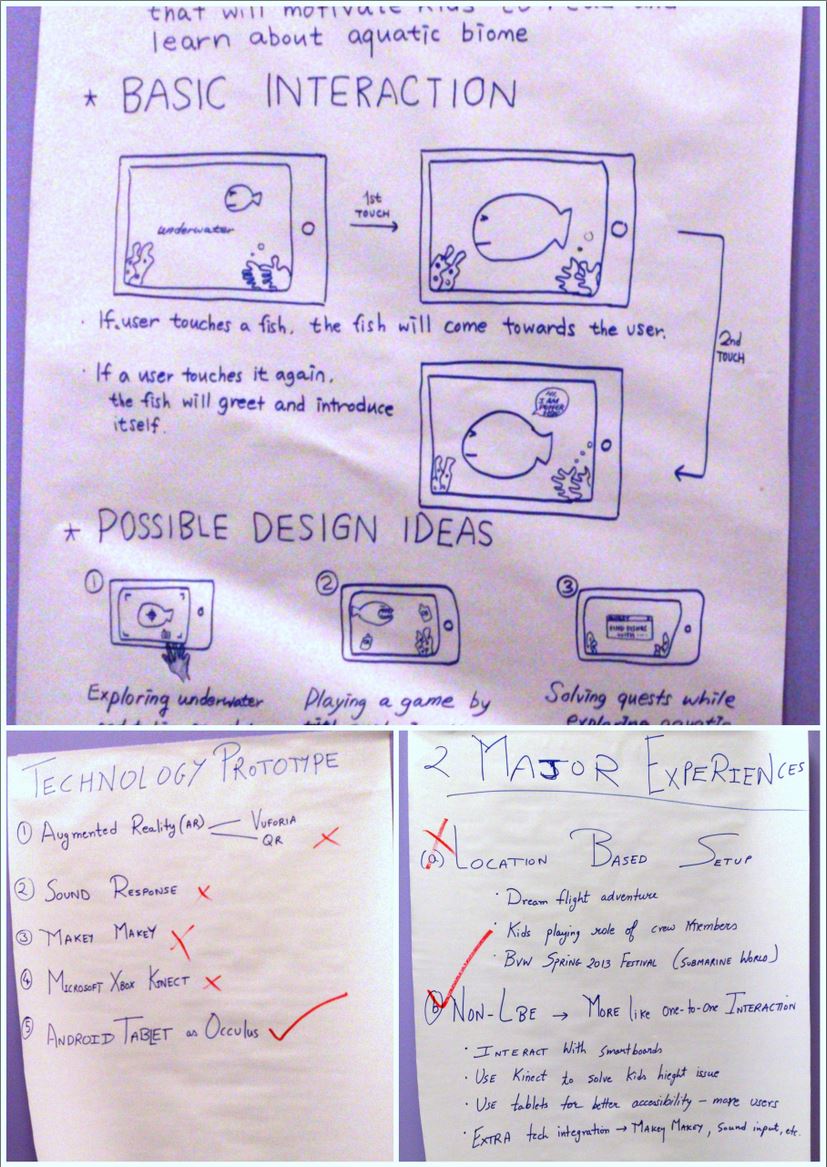 that will motivate kids to read and
learn about aquatic biome
* BASIC INTERACTION
underwater
1st
TOUCH
· If user touches a fish, the fish will come towards the user.
2nd
TOUCH
· If a user touches it again,
the fish will greet and introduce
itself.
HI,
I AM
PUFFER
FISH
* POSSIBLE DESIGN IDEAS
①
②
③
Exploring underwater
Playing a game by
Solving quests while
exploring aquatic
TECHNOLOGY PROTOTYPE
① Augmented Reality (AR) VUFORIA
QR
② SOUND RESPONSE
③ MAKEY MAKEY
④ MICROSOFT XBOX KINECT
⑤ ANDROID TABLET as OCCULUS
2 MAJOR EXPERIENCES
(a) LOCATION BASED SETUP
· Dream flight adventure
· Kids playing role of crew Members
· BVW SPRING 2013 FESTIVAL (SUBMARINE WORLD)
(b) NON-LBE → MORE like one-to-one INTERACTION
· INTERACT With smartboards
· USE Kinect to solve kids hieght issue
· USE tablets for better accesibility - more users
· EXTRA tech integration → MAKEY MAKEY, Sound input, etc.